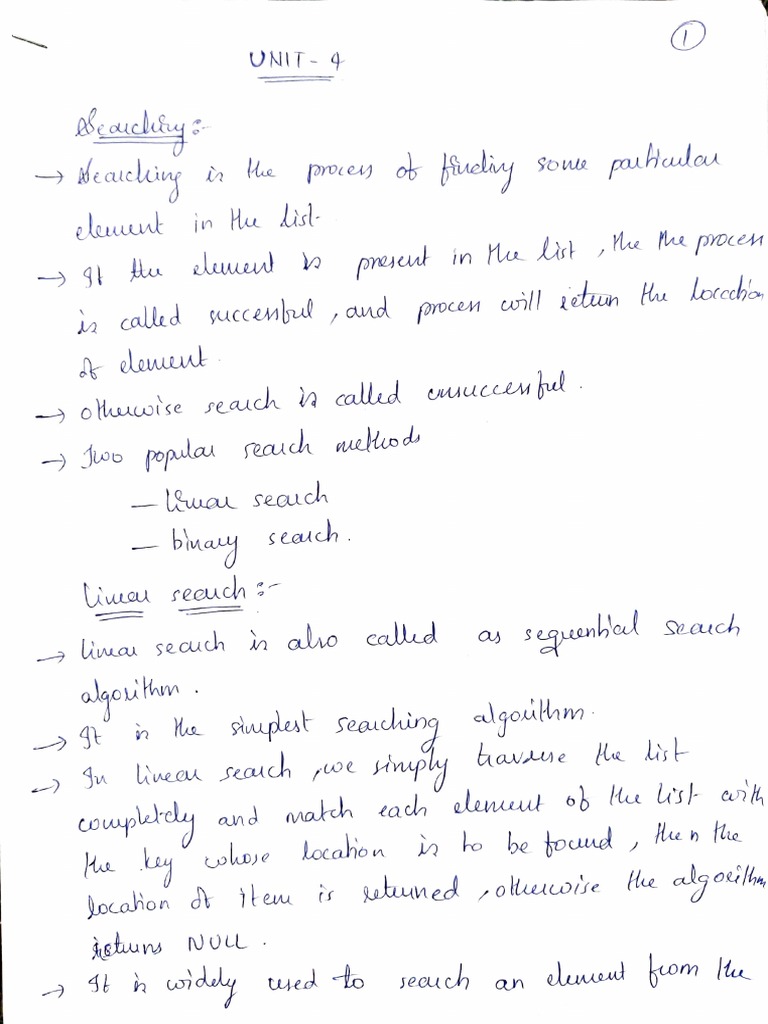 1
UNIT - 4
Searching :-
→ Searching is the process of finding some particular
element in the list.
→ If the element is present in the list, the the process
is called successful, and process will return the location
of element.
→ otherwise search is called unsuccessful.
→ Two popular search methods
— linear search
— binary search.
Linear search :-
→ linear search is also called as sequential search
algorithm.
→ It is the simplest searching algorithm.
→ In linear search, we simply traverse the list
completely and match each element of the list with
the key whose location is to be found, then the
location of item is returned, otherwise the algorithm
returns NULL.
→ It is widely used to search an element from the